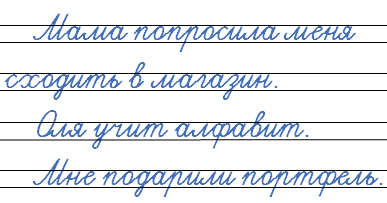 Мама попросила меня
сходить в магазин.
Оля учит алфавит.
Мне подарили портфель.